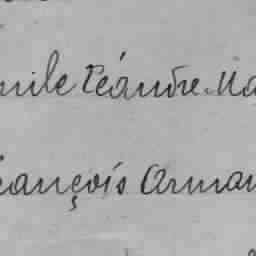 mile Léandre Ma
rançois Arman